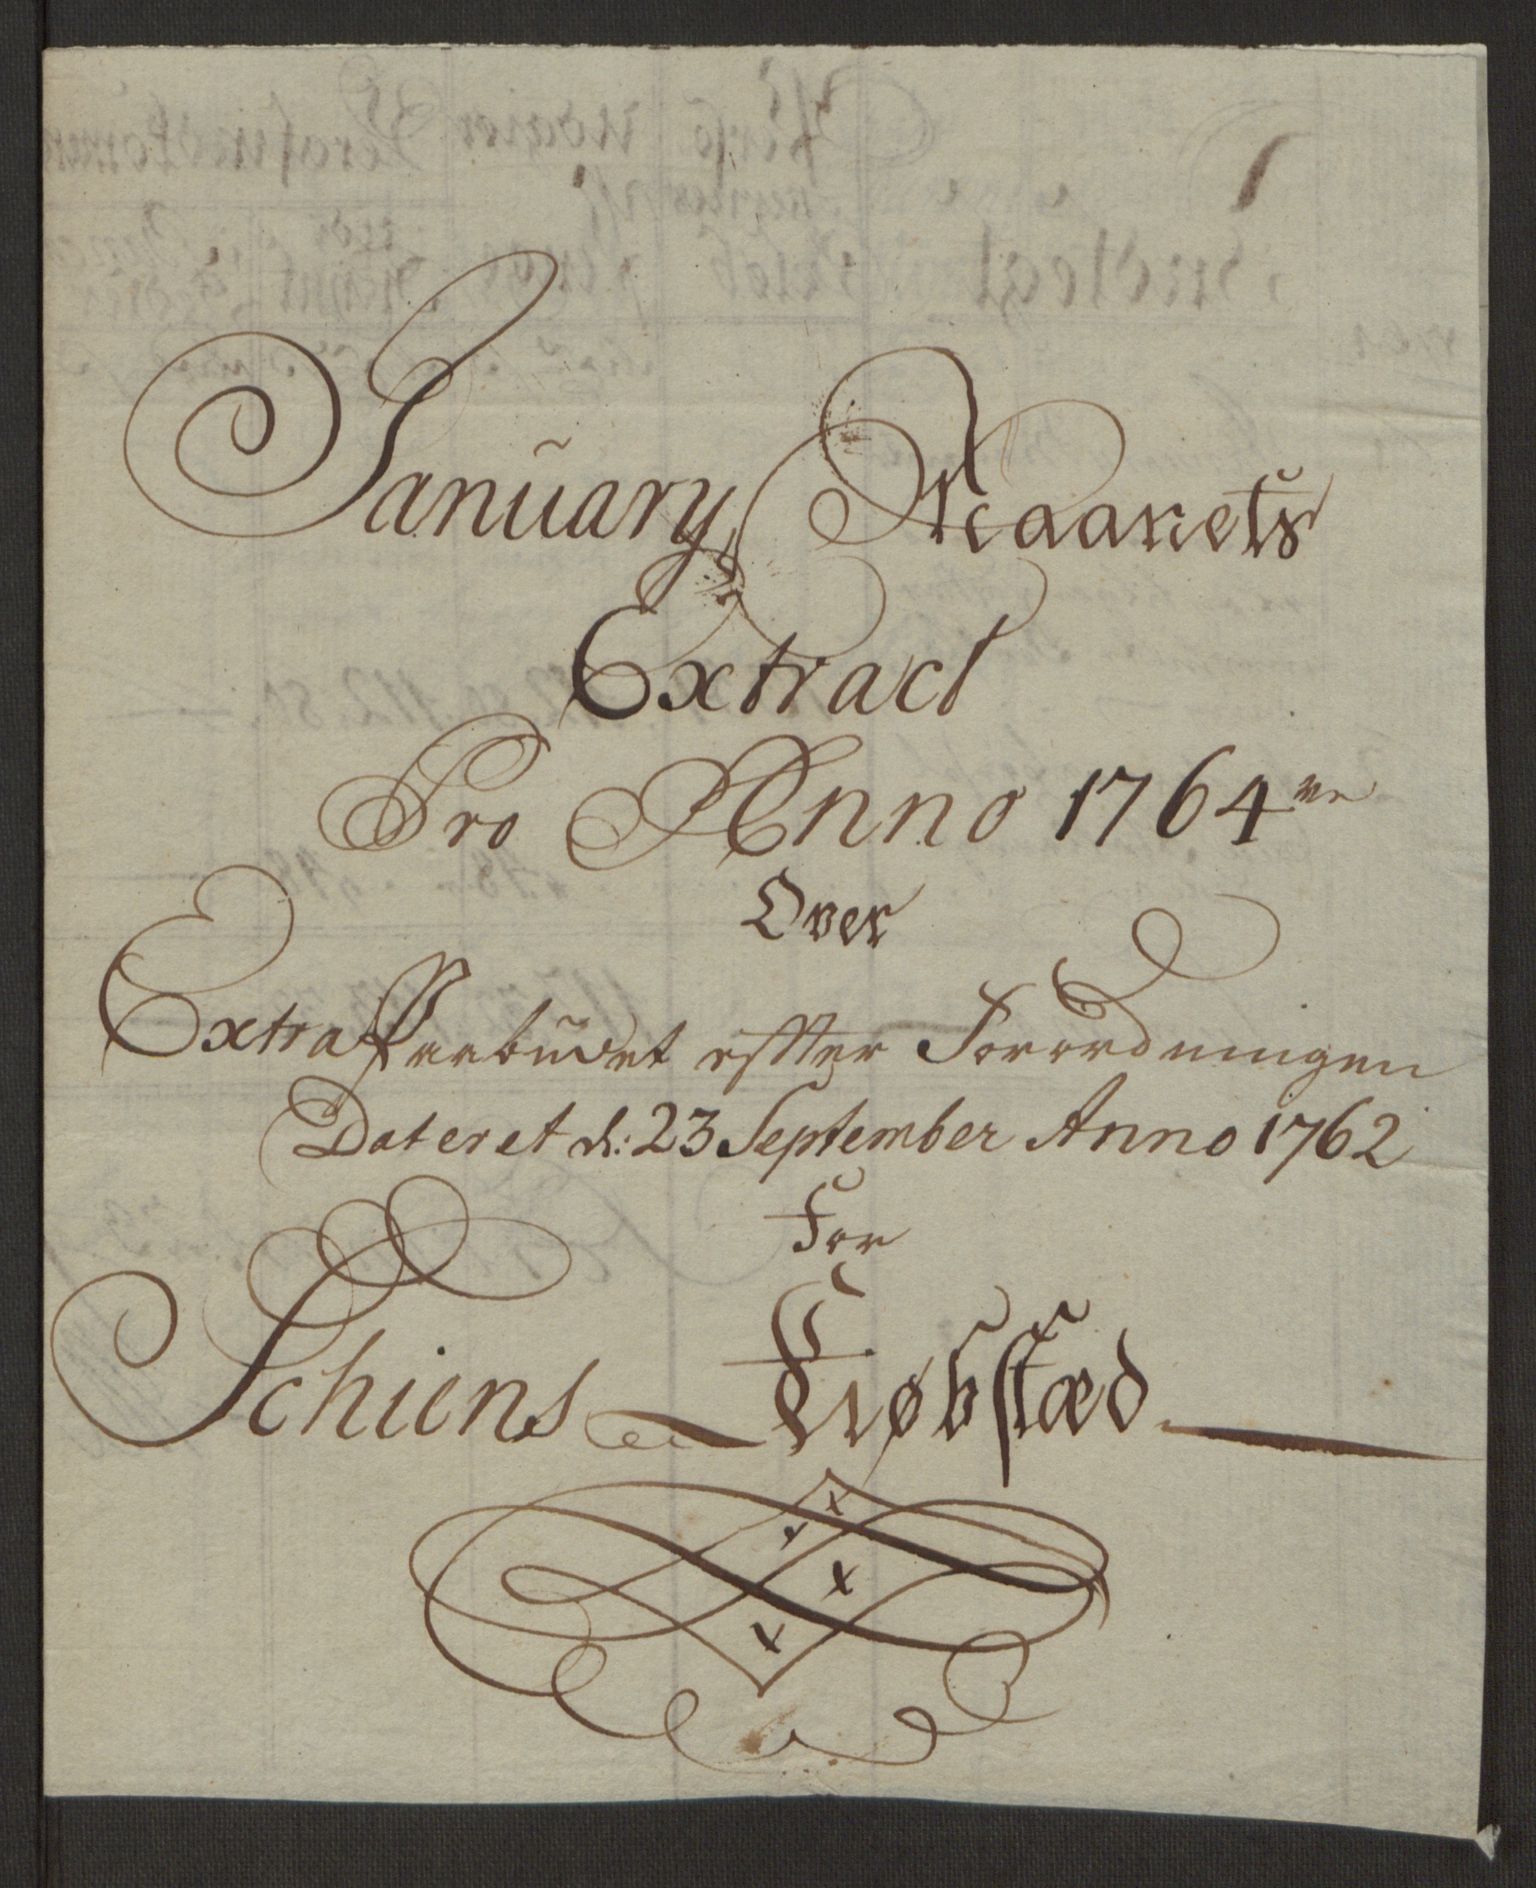 Januarÿ Maanets
Extract
Pro Anno 1764ve
Over
Extra Paabudet efter Forordningen
Dateret d: 23 September Anno 1762
For
Schiens Kiøbstæd